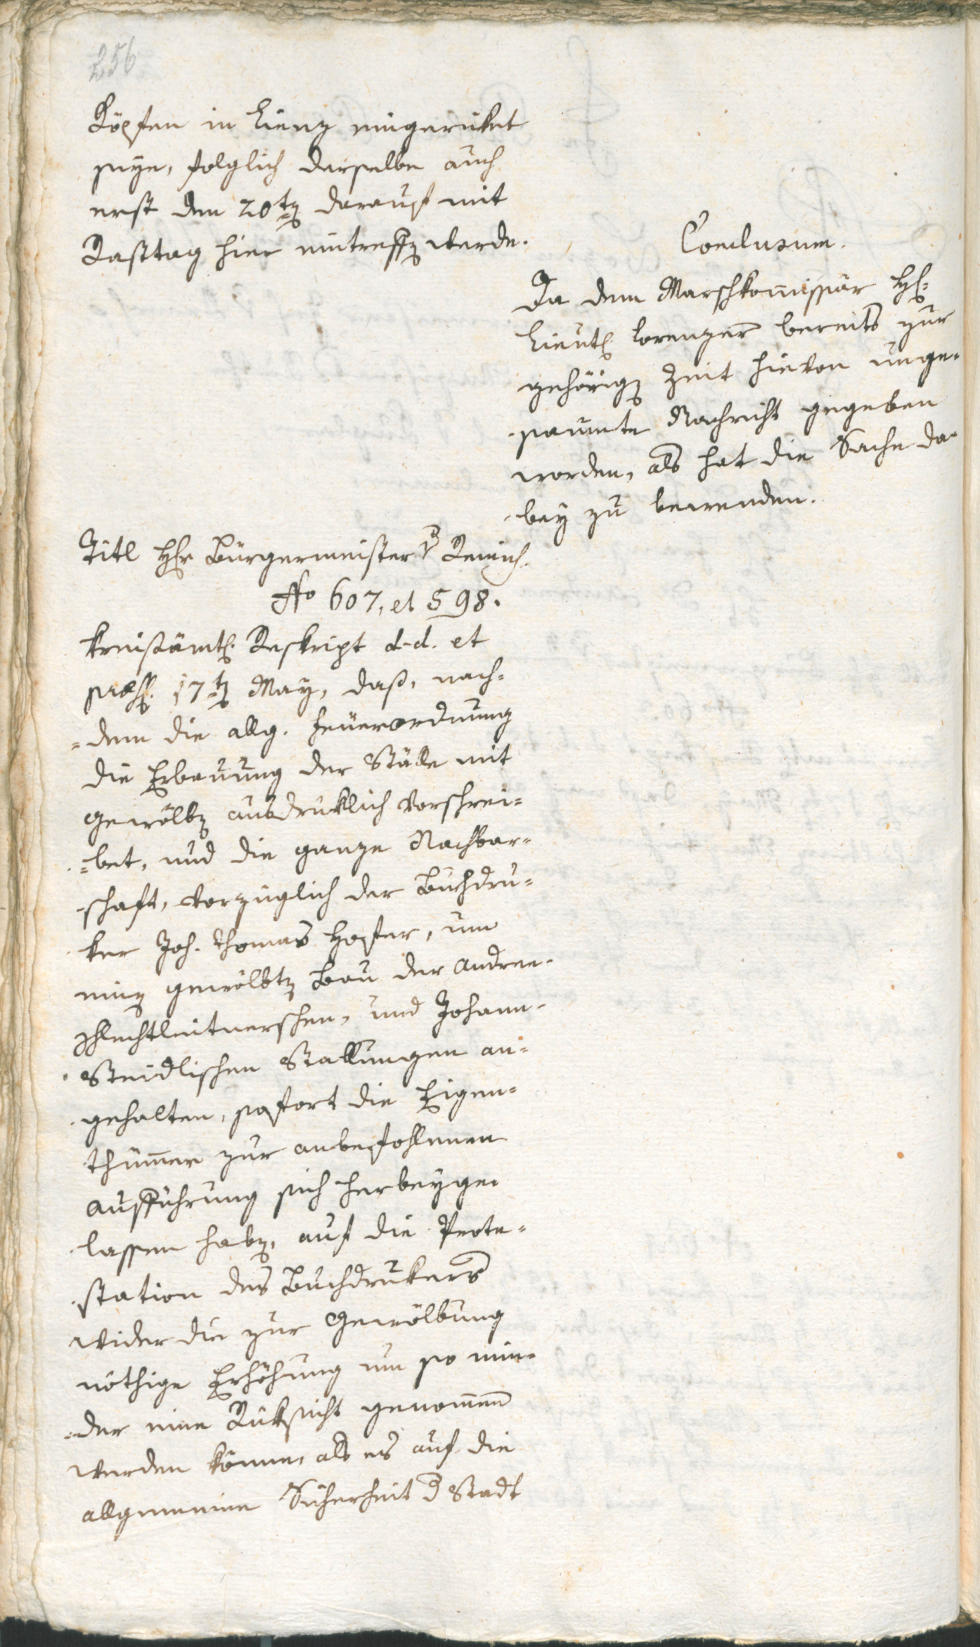 256
Köpfen in Lienz eingerücket
seye, folglich derselbe auch
erst den 20tẽ darauf mit
Rasttag hier eintreffẽ werde.
Conclusum.
Da dem Marschkommissär H:
Lieut: Lorenzer bereits zur
gehörigẽ Zeit hievon unge-
saumte Nachricht gegeben
worden, als hat die Sache da-
bey zu bewenden.
Titl H: Bürgermeister
No 607, et 598.
Kreisämtl: Reskript d-d. et
præs: 17tẽ May, daß, nach-
=dem die allg. Feuerordnung
die Erbauung der Ställe mit
Gewölbẽ ausdruklich vorschrei=
=bet, und die ganze Nachbar=
schaft, vorzüglich der Buchdru=
ker Joh. Thomas Hopfer, um
einẽ gewölbtẽ Bau der Andree-
Schlechtleitnerschen, und Johann-
Steidlischen Stallungen an=
gehalten, sofort die Eigen=
thümer zur anbefohlenen
Ausführung sich herbeyge-
lassen habẽ, auf die Prote=
station des Buchdrukers
wider die zur Gewölbung
nöthige Erhöhung um so min-
=der eine Rüksicht genommen
werden könne, als es auf die
allgemeine Sicherheit d Stadt